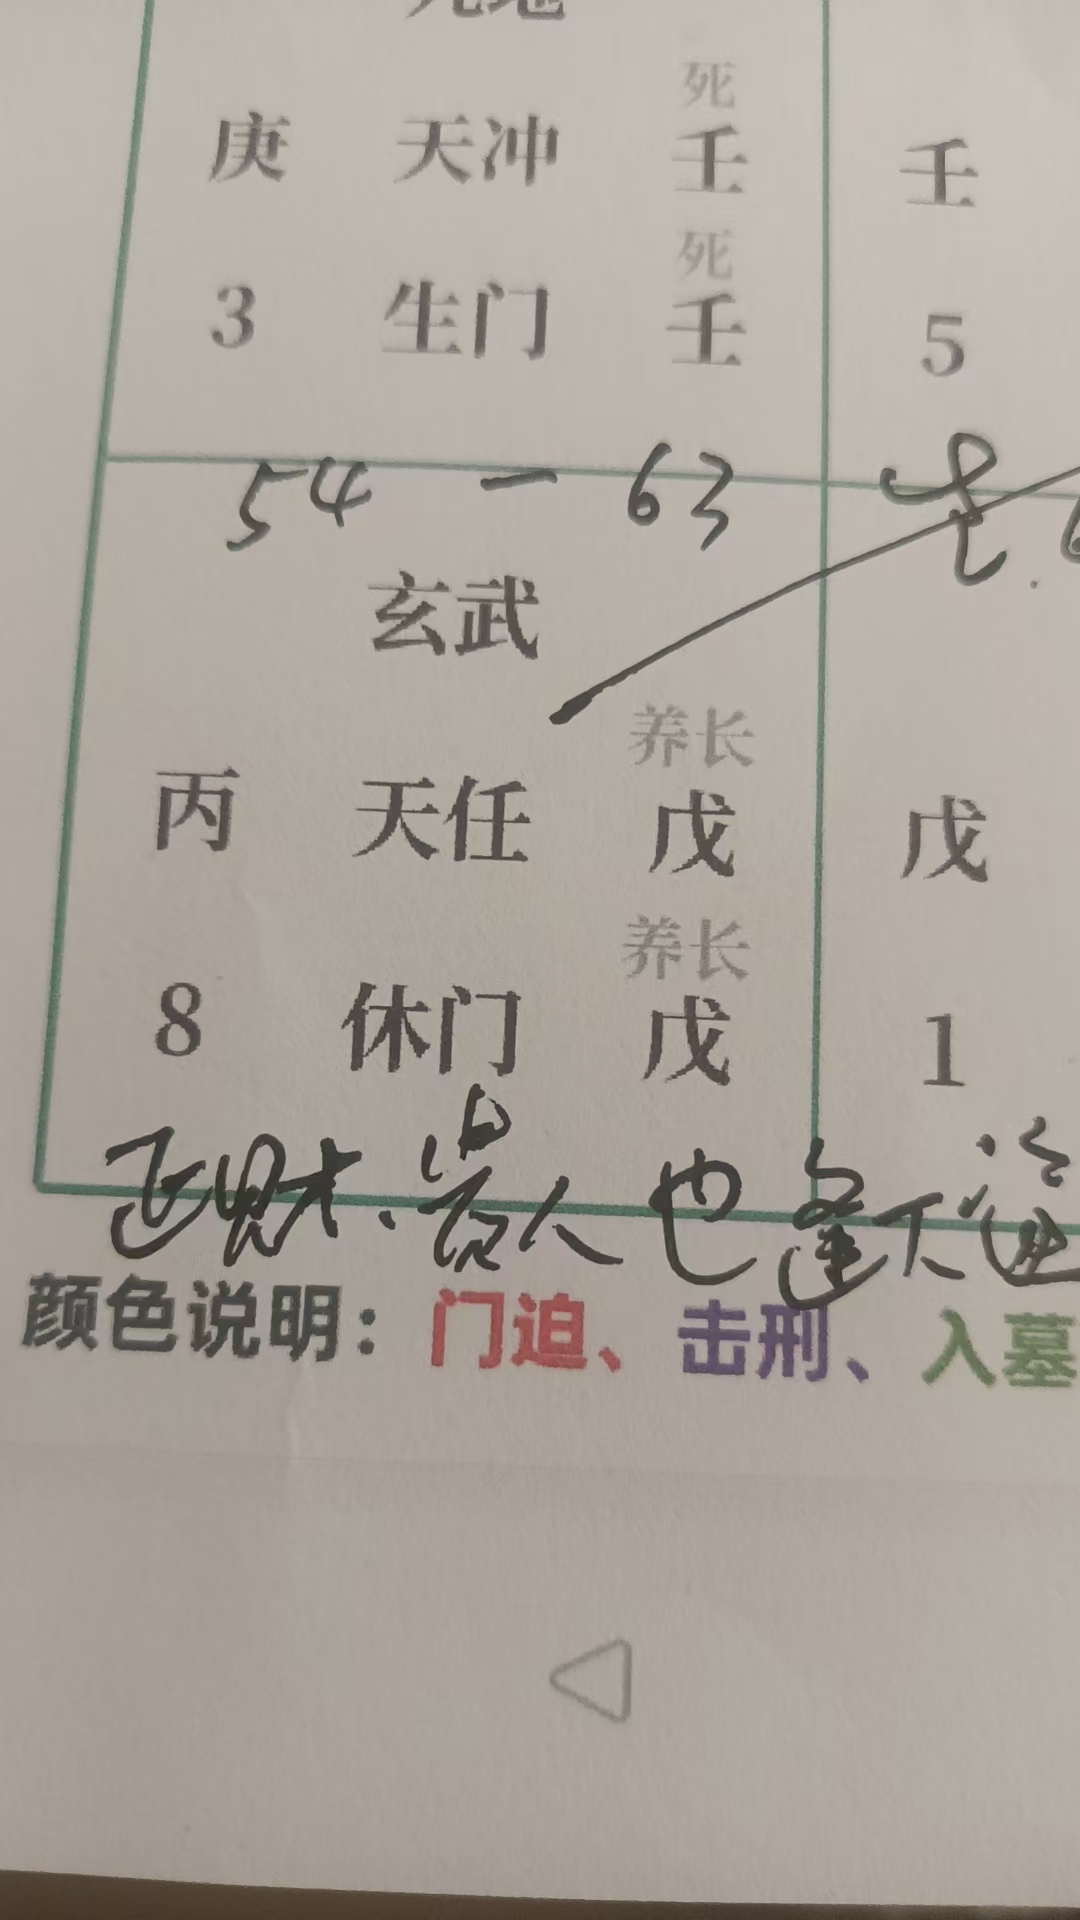 九地
死
庚 天冲 壬 壬
死
3 生门 壬 5
54 — 63
玄武
养长
丙 天任 戊 戊
养长
8 休门 戊 1
正财、贵人也逢
颜色说明：门迫、击刑、入墓